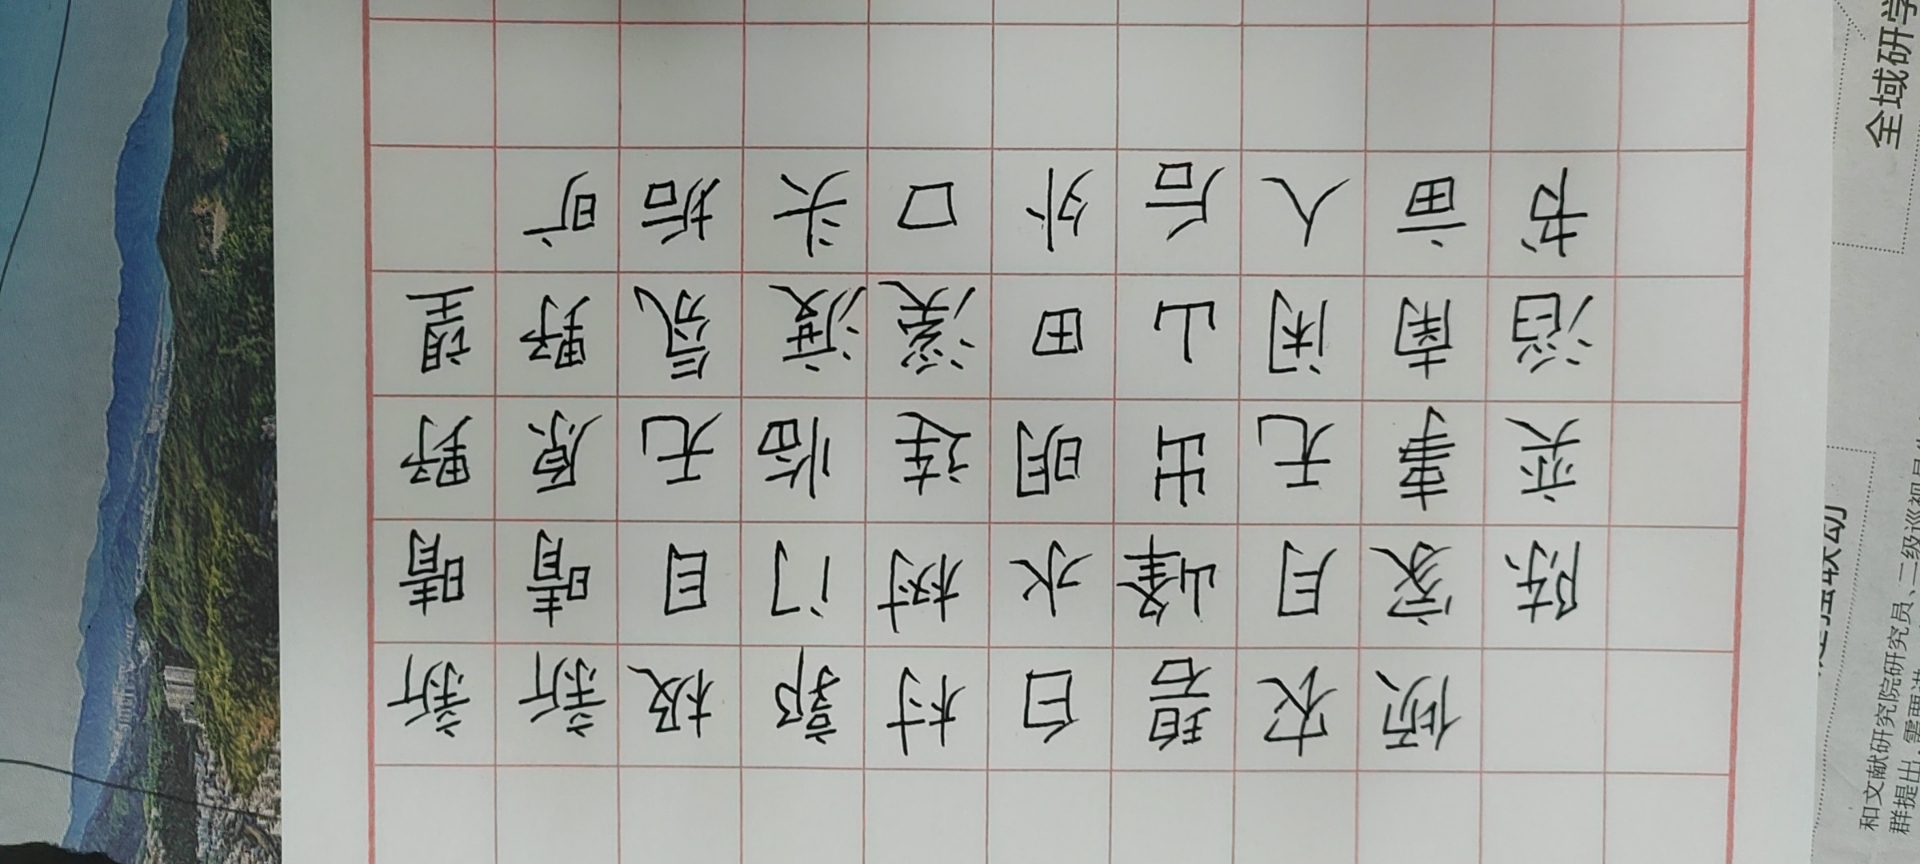 新晴野望
新晴原野旷
极目无氛垢
郭门临渡头
村树连溪口
白水明田外
碧峰出山后
农月无闲人
倾家事南亩
陈奕滔书
全域研学
和文献研究院研究员、二级巡视员
群提出,需要进